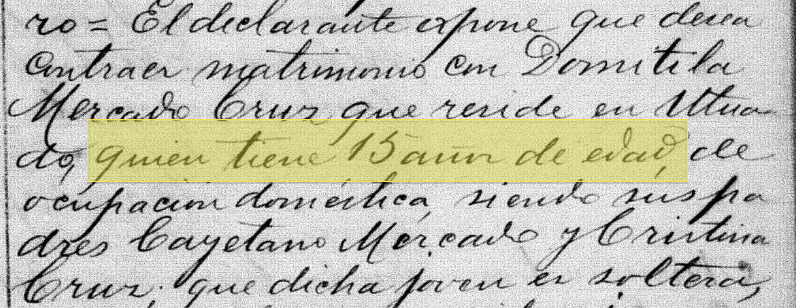 ro= El declarante expone que desea
contraer matrimonio con Domitila
Mercado Cruz que reside en Utua-
do, quien tiene 15 años de edad, de
ocupación doméstica, siendo sus pa
dres Cayetano Mercado y Cristina
Cruz; que dicha joven es soltera,